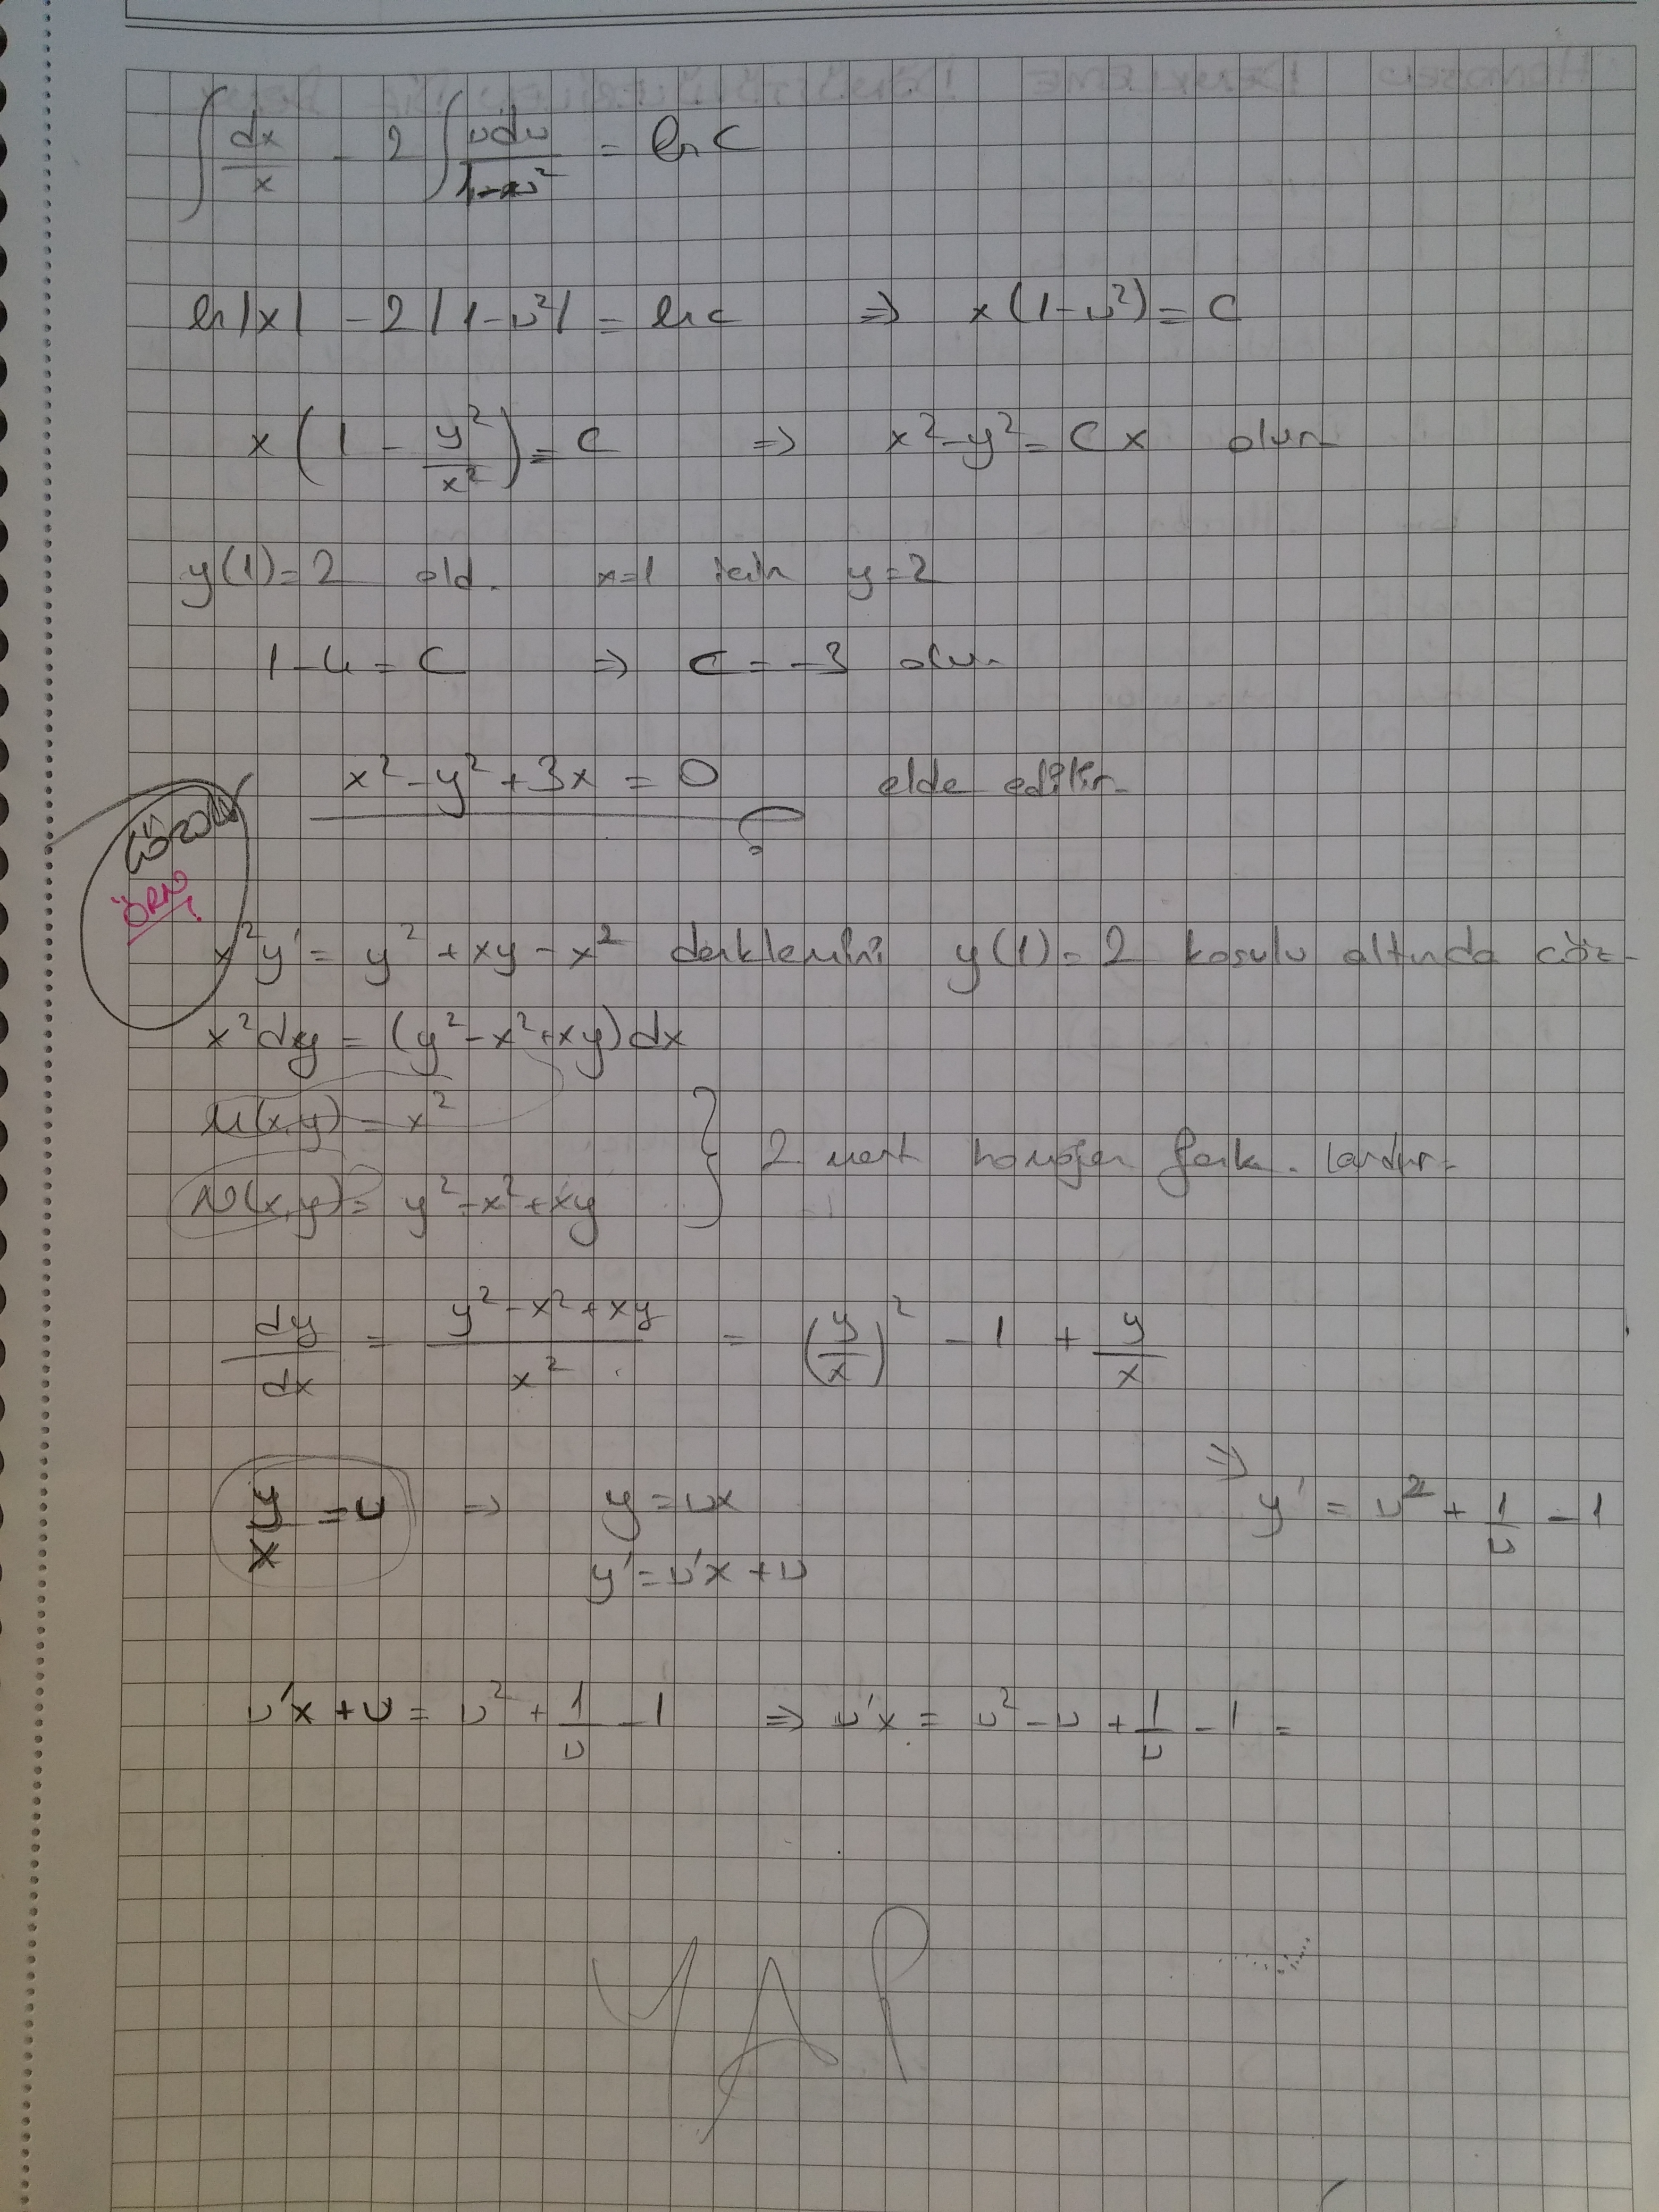 ∫ dx/x - 2 ∫ υdυ/1-υ² = ln c
ln|x| - 2|1-υ²| = ln c ⇒ x(1-υ²) = c
x(1 - y²/x²) = c ⇒ x²-y² = cx olur
y(1)=2 old. x=1 için y=2
1-4 = c ⇒ c = -3 olur
x²-y²+3x = 0 elde edilir
ÖRN
x²y' = y²+xy-x² denklemini y(1)=2 koşulu altında çöz
x²dy = (y²-x²+xy)dx
M(x,y) = x²
N(x,y) = y²-x²+xy } 2. mert homojen fonk. lardır
dy/dx = y²-x²+xy/x² = (y/x)² - 1 + y/x
y/x = υ ⇒ y = υx ⇒ y' = υ² + 1/υ - 1
y' = υ'x + υ
υ'x + υ = υ² + 1/υ - 1 ⇒ υ'x = υ² - υ + 1/υ - 1 =
YAP